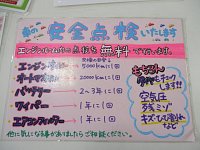 春の安全点検いたします
エンジンルームの点検を無料で行います。
交換の目安
エンジンオイル 5000kmに1回
オートマオイル
バッテリー 2〜3年に1回
ワイパー 1年に1回
エアコンフィルター 1年に1回
もちろん
タイヤもチェックします!!
空気圧
残ミゾ
キズ・ひび割れなど
他に気になる事がありましたらご相談ください。